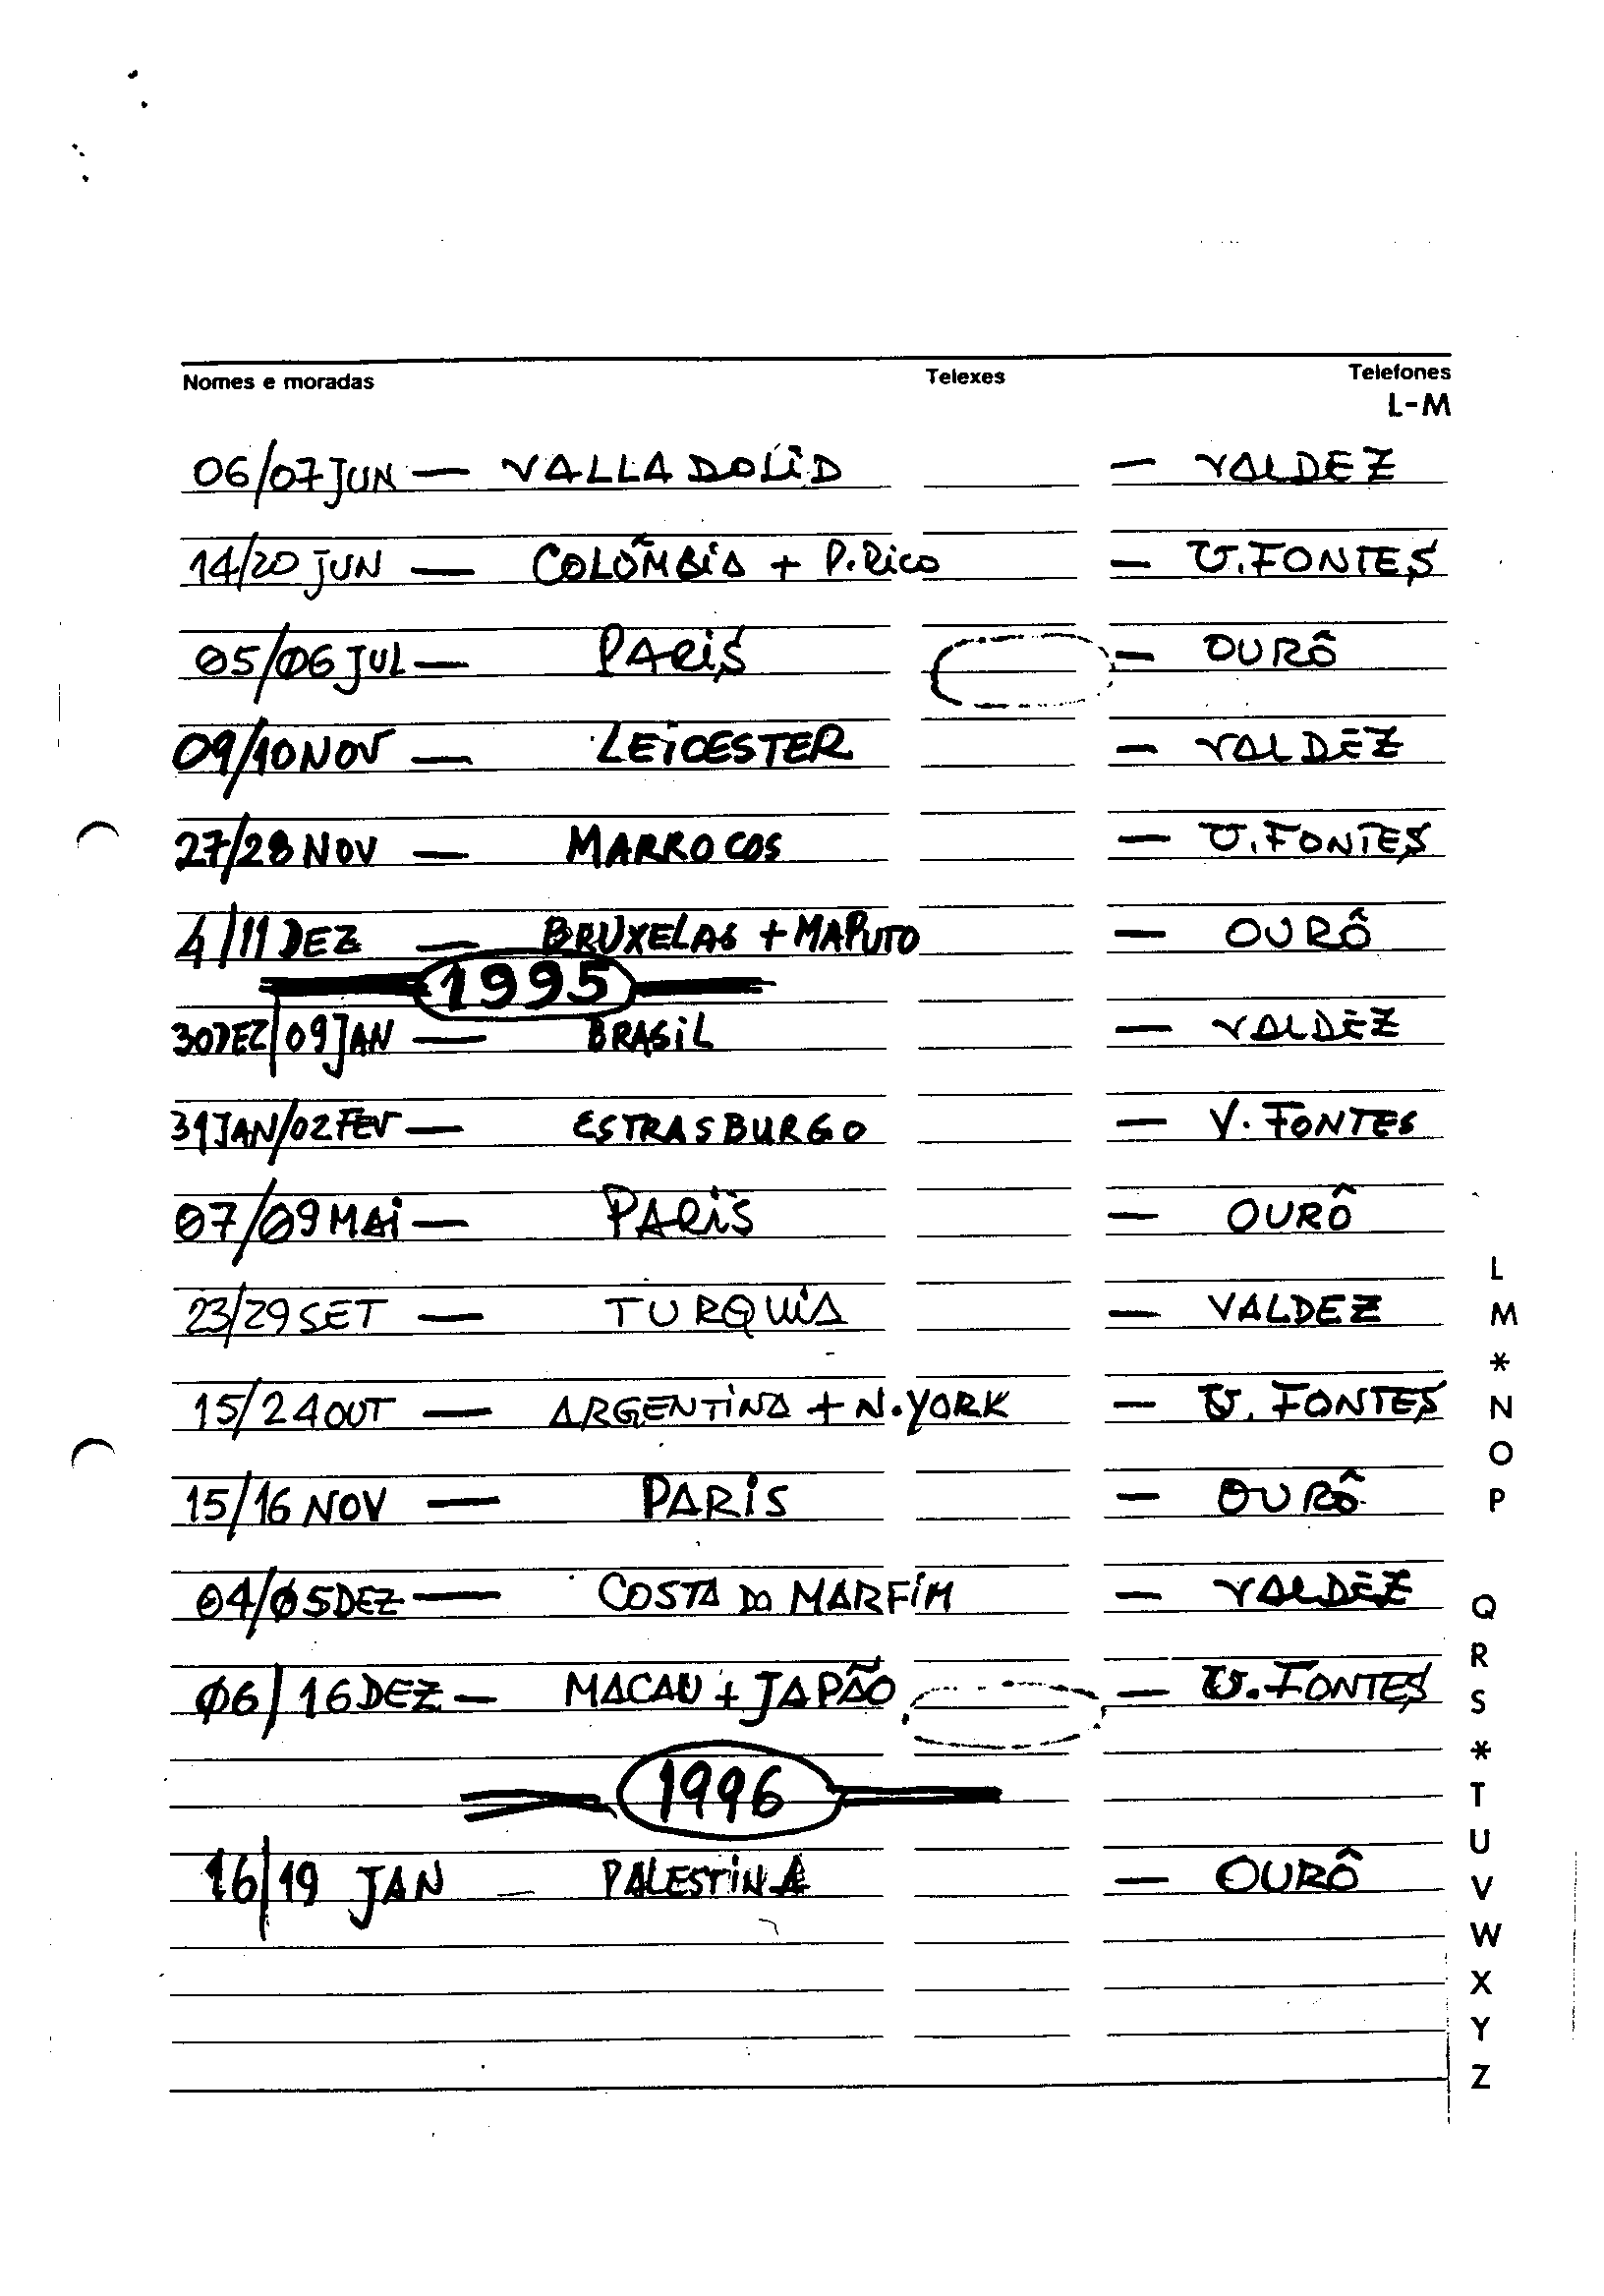 Nomes e moradas Telexes Telefones
L-M
06/07 JUN — VALLADOLID — VALDEZ
14/20 JUN — COLÔMBIA + P. RICO — V. FONTES
05/06 JUL — PARIS — OURÔ
09/10 NOV — LEICESTER — VALDEZ
27/28 NOV — MARROCOS — V. FONTES
4/11 DEZ — BRUXELAS + MAPUTO — OURÔ
1995
30 DEZ/09 JAN — BRASIL — VALDEZ
31 JAN/02 FEV — ESTRASBURGO — V. FONTES
07/09 MAI — PARIS — OURÔ
23/29 SET — TURQUIA — VALDEZ
15/24 OUT — ARGENTINA + N. YORK — V. FONTES
15/16 NOV — PARIS — OURÔ
04/05 DEZ — COSTA DO MARFIM — VALDEZ
06/16 DEZ — MACAU + JAPÃO — V. FONTES
1996
16/19 JAN — PALESTINA — OURÔ
L
M
*
N
O
P
Q
R
S
*
T
U
V
W
X
Y
Z